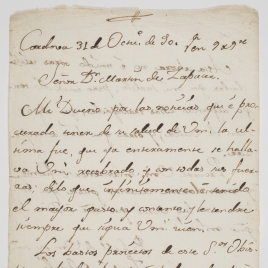 Cordova 31 de Octu.e de 90.
Señor D.n Martin de
Mi Dueño, por las noticias que é pro-
curado tener de su salud de Vm. la ul-
tima fue, que ya enteramente se halla-
va Vm. recobrado, y con todas sus fuer-
zas; de lo que infinitamente é tenido
el mayor gusto, y consuelo, y le tendre
siempre que siga Vm. bien.
Los bastos proiectos de este S.or Obis-